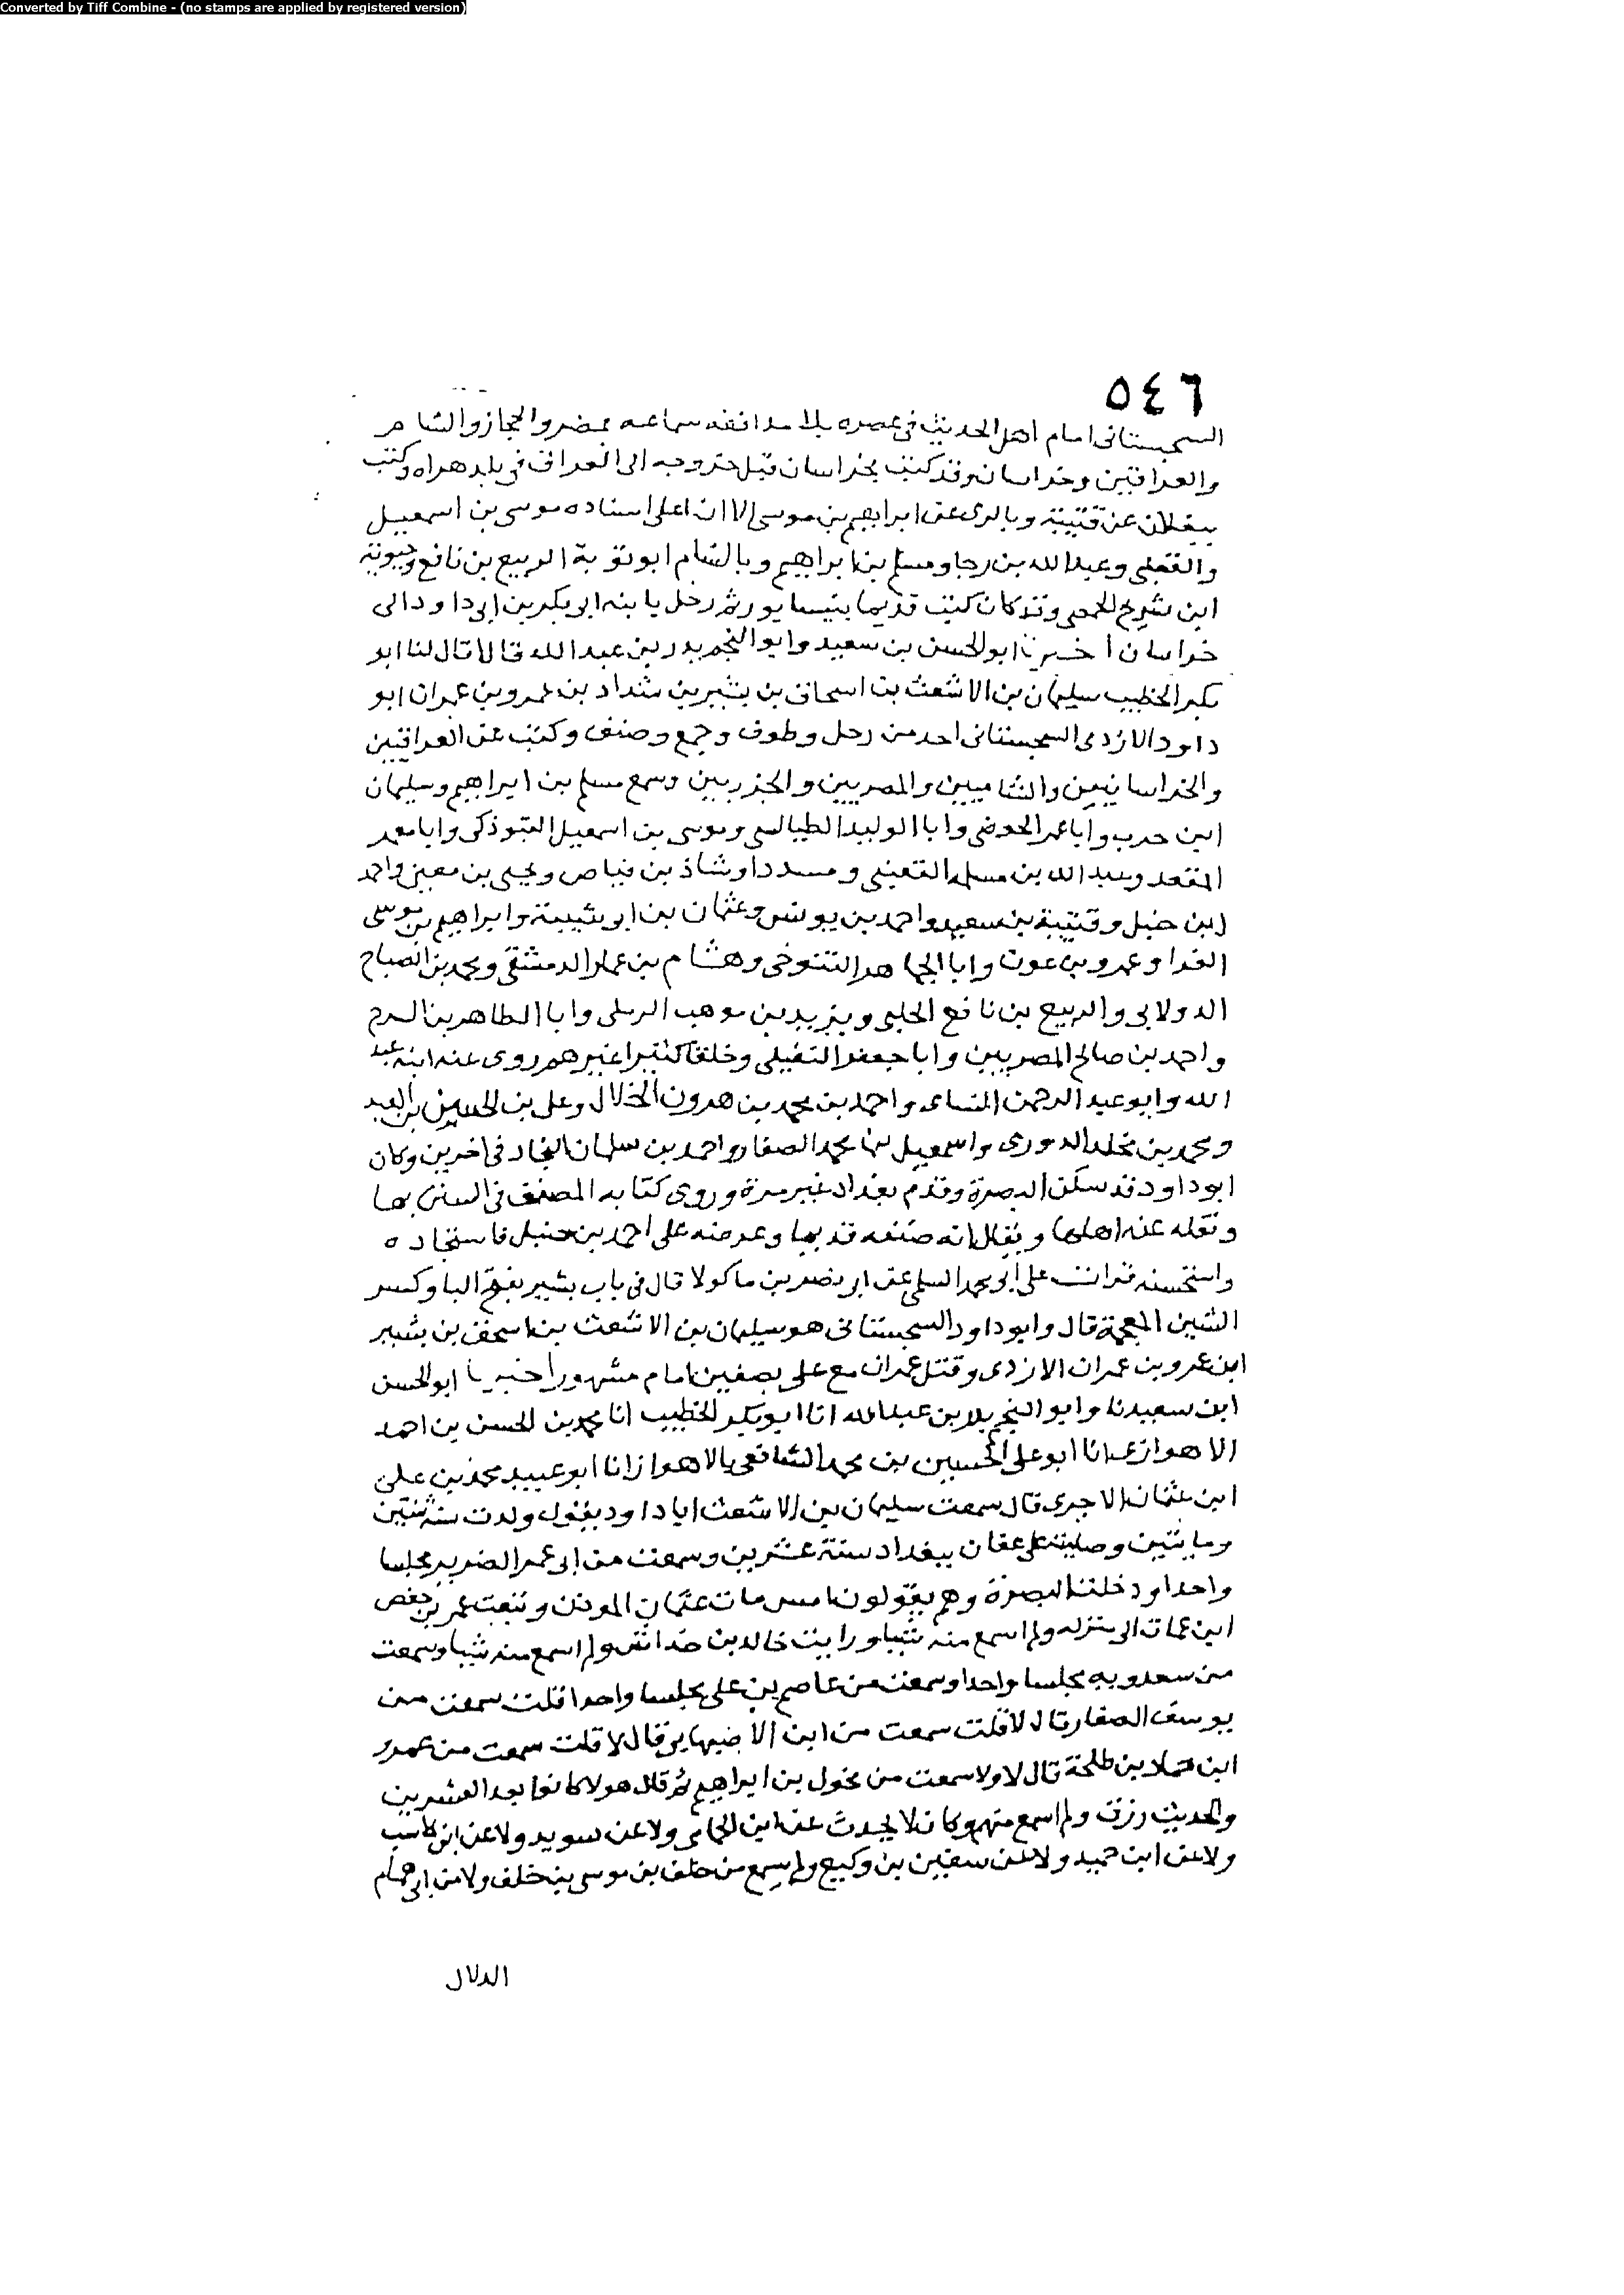 Converted by Tiff Combine - (no stamps are applied by registered version)
٥٤٦
السجستانى امام اهل الحديث فى عصره بلا مدافعه سماعه بمصر والحجاز والشام
والعراقين وخراسان وقد كتب بخراسان قبل خروجه الى العراق فى بلده هراه وكتب
ببغلان عن قتيبة وبالرى عن ابراهيم بن موسى الا ان اعلى اسناده موسى بن اسمعيل
والقعنبى وعبد الله بن رجا ومسلم بن ابراهيم وبالشام ابو توبة الربيع بن نافع وحيوة
ابن شريح الحمصى وقد كان كتب قديما بنيسابور ثم رحل بابنه ابى بكر بن ابى داود الى
خراسان اخبرنا ابو الحسن بن سعيد وابو النجم بدر بن عبد الله قالا قال لنا ابو
بكر الخطيب سليمان بن الاشعث بن اسحاق بن بشير بن شداد بن عمرو بن عمران ابو
داود الازدى السجستانى احد من رحل وطوف وجمع وصنف وكتب عن العراقيين
والخراسانيين والشاميين والمصريين والجزريين وسمع مسلم بن ابراهيم وسليمان
ابن حرب وابا عمر الحوضى وابا الوليد الطيالسى وموسى بن اسمعيل التبوذكى وابا معمر
المقعد وعبد الله بن مسلمه القعنبى ومسددا وشاذ بن فياض ويحيى بن معين واحمد
ابن حنبل وقتيبة بن سعيد واحمد بن يونس وعثمان بن ابى شيبة وابراهيم بن موسى
الفرا وعمرو بن عون وابا الجماهر التنوخى وهشام بن عمار الدمشقى ومحمد بن الصباح
الدولابى والربيع بن نافع الحلبى ويزيد بن موهب الرملى وابا الطاهر بن السرح
واحمد بن صالح المصريين وابا جعفر النفيلى وخلقا كثيرا غيرهم روى عنه ابنه عبد
الله وابو عبد الرحمن النساى واحمد بن محمد بن هرون الخلال وعلى بن الحسين بن العبد
ومحمد بن مخلد الدورى واسمعيل بن محمد الصفار واحمد بن سلمان النجاد فى اخرين وكان
ابو داود قد سكن البصرة وقدم بغداد غير مرة وروى كتابه المصنف فى السنن بها
ونقله عنه اهلها ويقال انه صنفه قديما وعرضه على احمد بن حنبل فاستجاده
واستحسنه قرات على ابى محمد السلمى عن ابى نصر بن ماكولا قال فى باب بشير بفتح البا وكسر
الشين المعجمة قال وابو داود السجستانى هو سليمان بن الاشعث بن اسحق بن بشير
ابن عمرو بن عمران الازدى وقتل عمران مع على بصفين امام مشهور اخبرنا ابو الحسن
ابن سعيد نا وابو النجم بدر بن عبد الله انا ابو بكر الخطيب انا محمد بن الحسن بن احمد
الاهوازى انا ابو على الحسين بن محمد الشافعى بالاهواز انا ابو عبيد محمد بن على
ابن عثمان الاجرى قال سمعت سليمان بن الاشعث ابا داود يقول ولدت سنة ثنتين
ومايتين وصليت على عفان ببغداد سنة عشرين وسمعت من ابى عمر الضرير مجلسا
واحدا ودخلت البصرة وهم يقولون امس مات عثمان الموذن وتبعت عمر بن حفص
ابن غياث الى منزله ولم اسمع منه شيا ورايت خالد بن خداش ولم اسمع منه شيا وسمعت
من سعدويه مجلسا واحدا وسمعت من عاصم بن على مجلسا واحدا قلت سمعت من
يوسف الصفار قال لا قلت سمعت من ابن الاصبهانى قال لا قلت سمعت من عمرو
ابن حماد بن طلحة قال لا ولا سمعت من مخول بن ابراهيم ثم قال هولا كانوا بعد العشرين
والحديث رزق ولم اسمع منهم وكان لا يحدث عن ابن الحمانى ولا عن سويد ولا عن ابن كاسب
ولا عن ابن حميد ولا عن سفين بن وكيع ولم يسمع من خلف بن موسى بن خلف ولا من ابى همام
الدلال